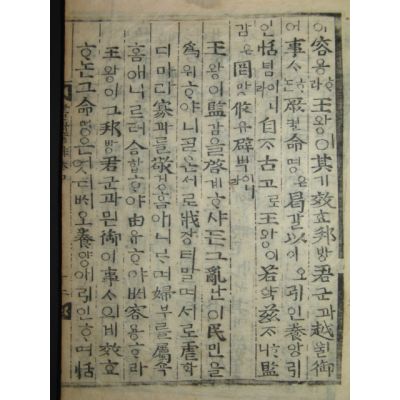 이容용ᄒᆞ라王왕이其기效효邦방君군과越월御
어事ᄉᆞᄂᆞᆫ厥궐命명은曷갈以이오引인養양引
인恬념이니自ᄌᆞ古고로王왕이若약茲ᄌᆞᄒᆞ니監
감은罔망攸유辟벽이니라
王왕이監감을啓계ᄒᆞ샤ᄃᆞᆫ그亂난이民민을
爲위ᄒᆞ야니ᄀᆞᆯ온서로戕장티말며서로虐학
디마라寡과를敬경홈애니르며婦부를屬쇽
홈애니르러合합ᄒᆞ야由유ᄒᆞ야ᄡᅥ容용ᄒᆞ라
王왕이그邦방君군과믿御어事ᄉᆞ의게效효
ᄒᆞ논그命명은엇디ᄡᅥ오養양애引인ᄒᆞ며恬